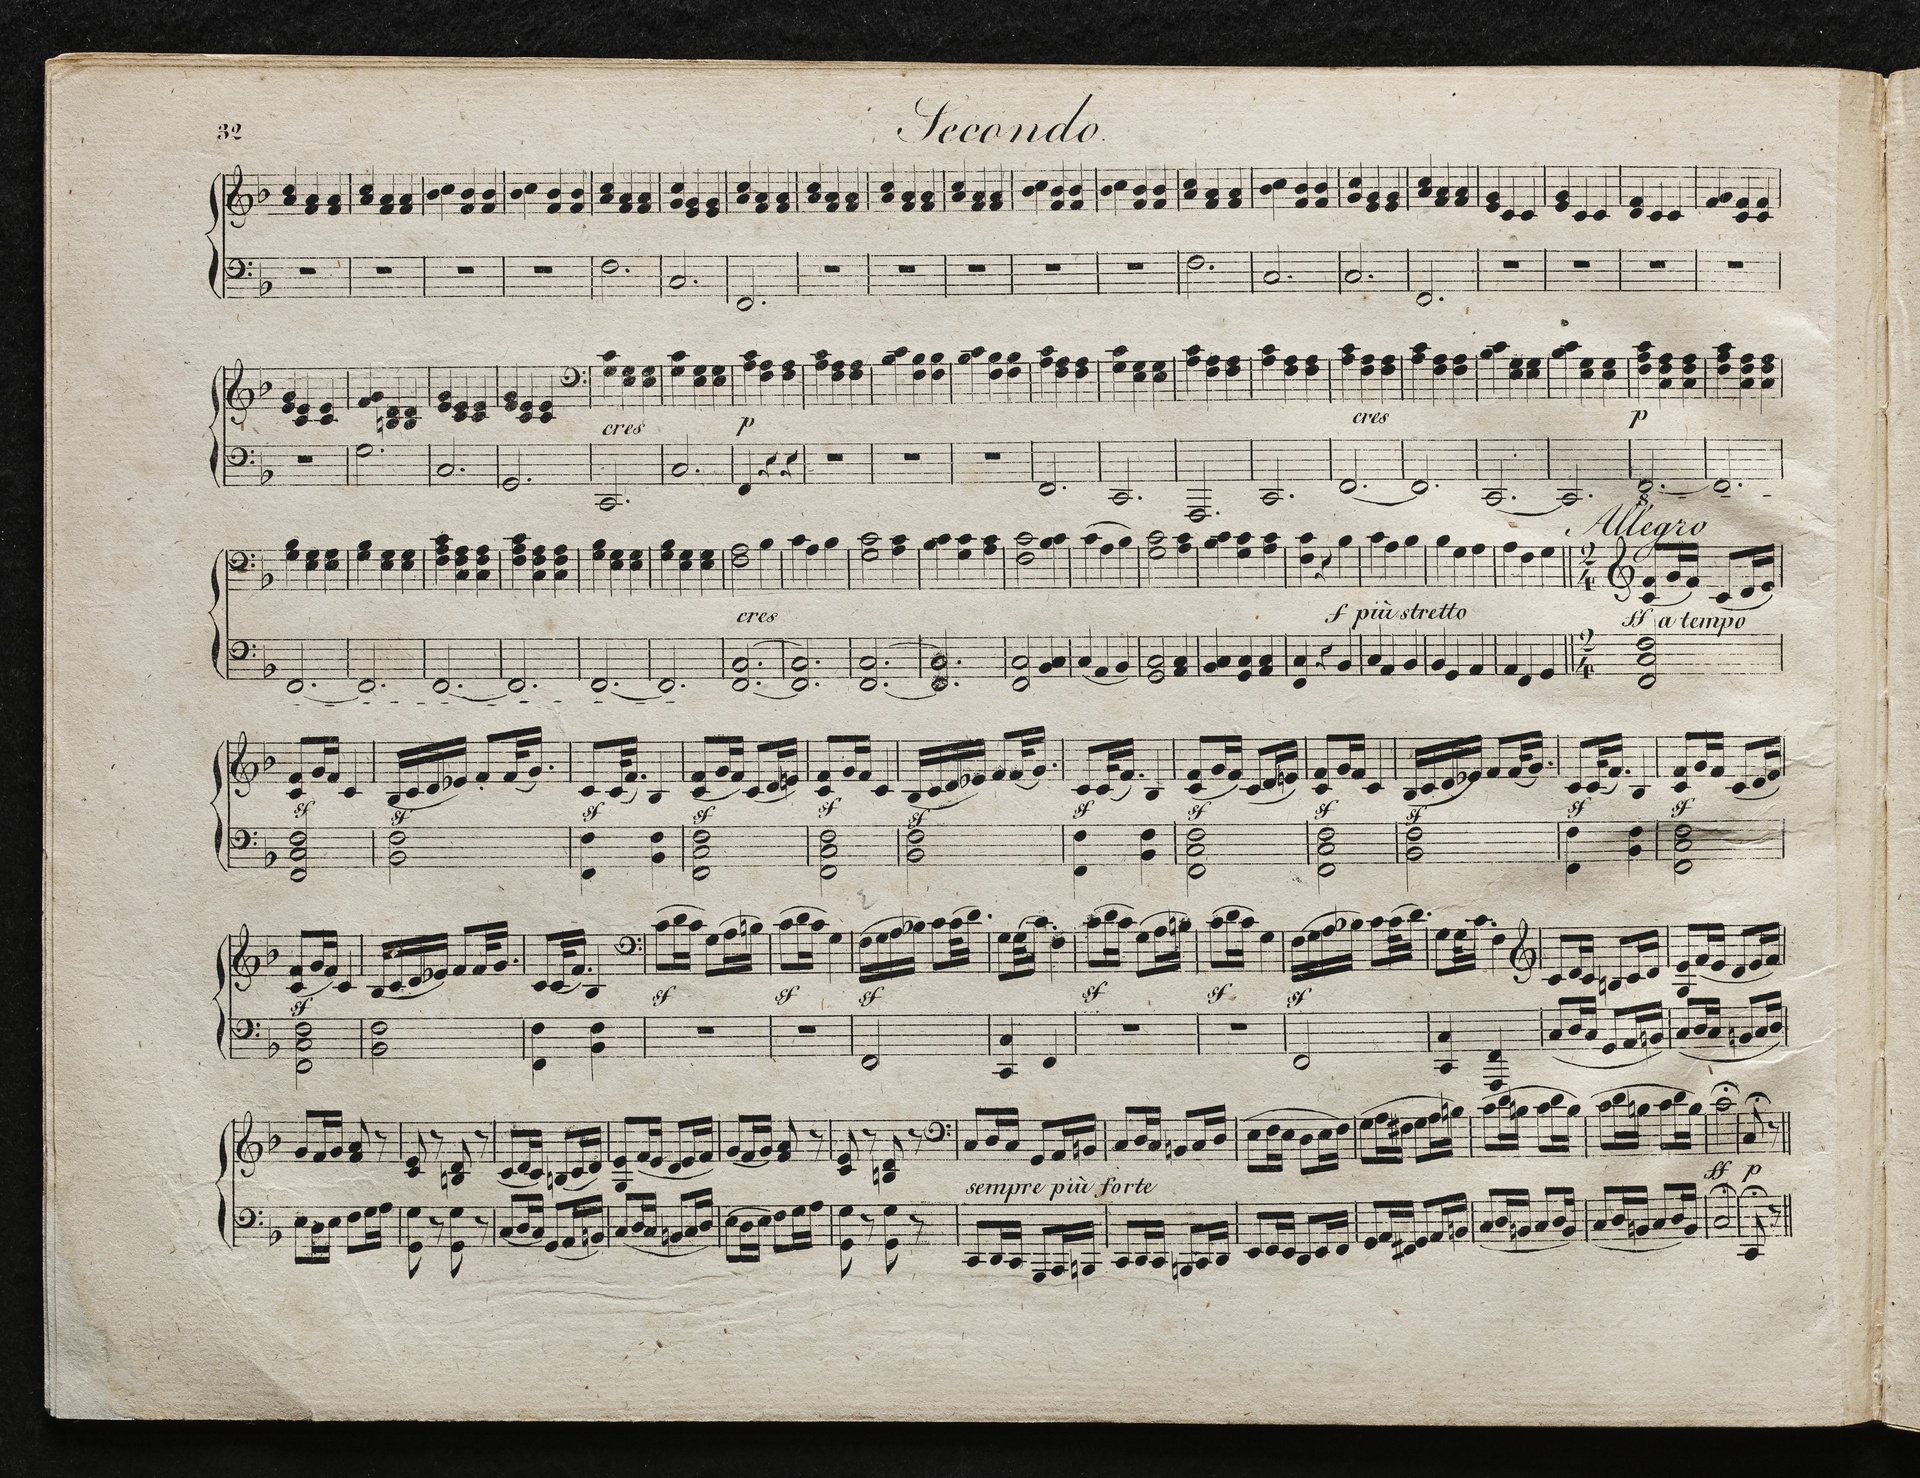 32
Secondo.
cres p cres p
8
Allegro
2 4
cres f più stretto ff a tempo
2 4
sf sf sf sf sf sf sf sf sf sf sf sf
sf sf sf sf sf sf sf
sempre più forte ff p